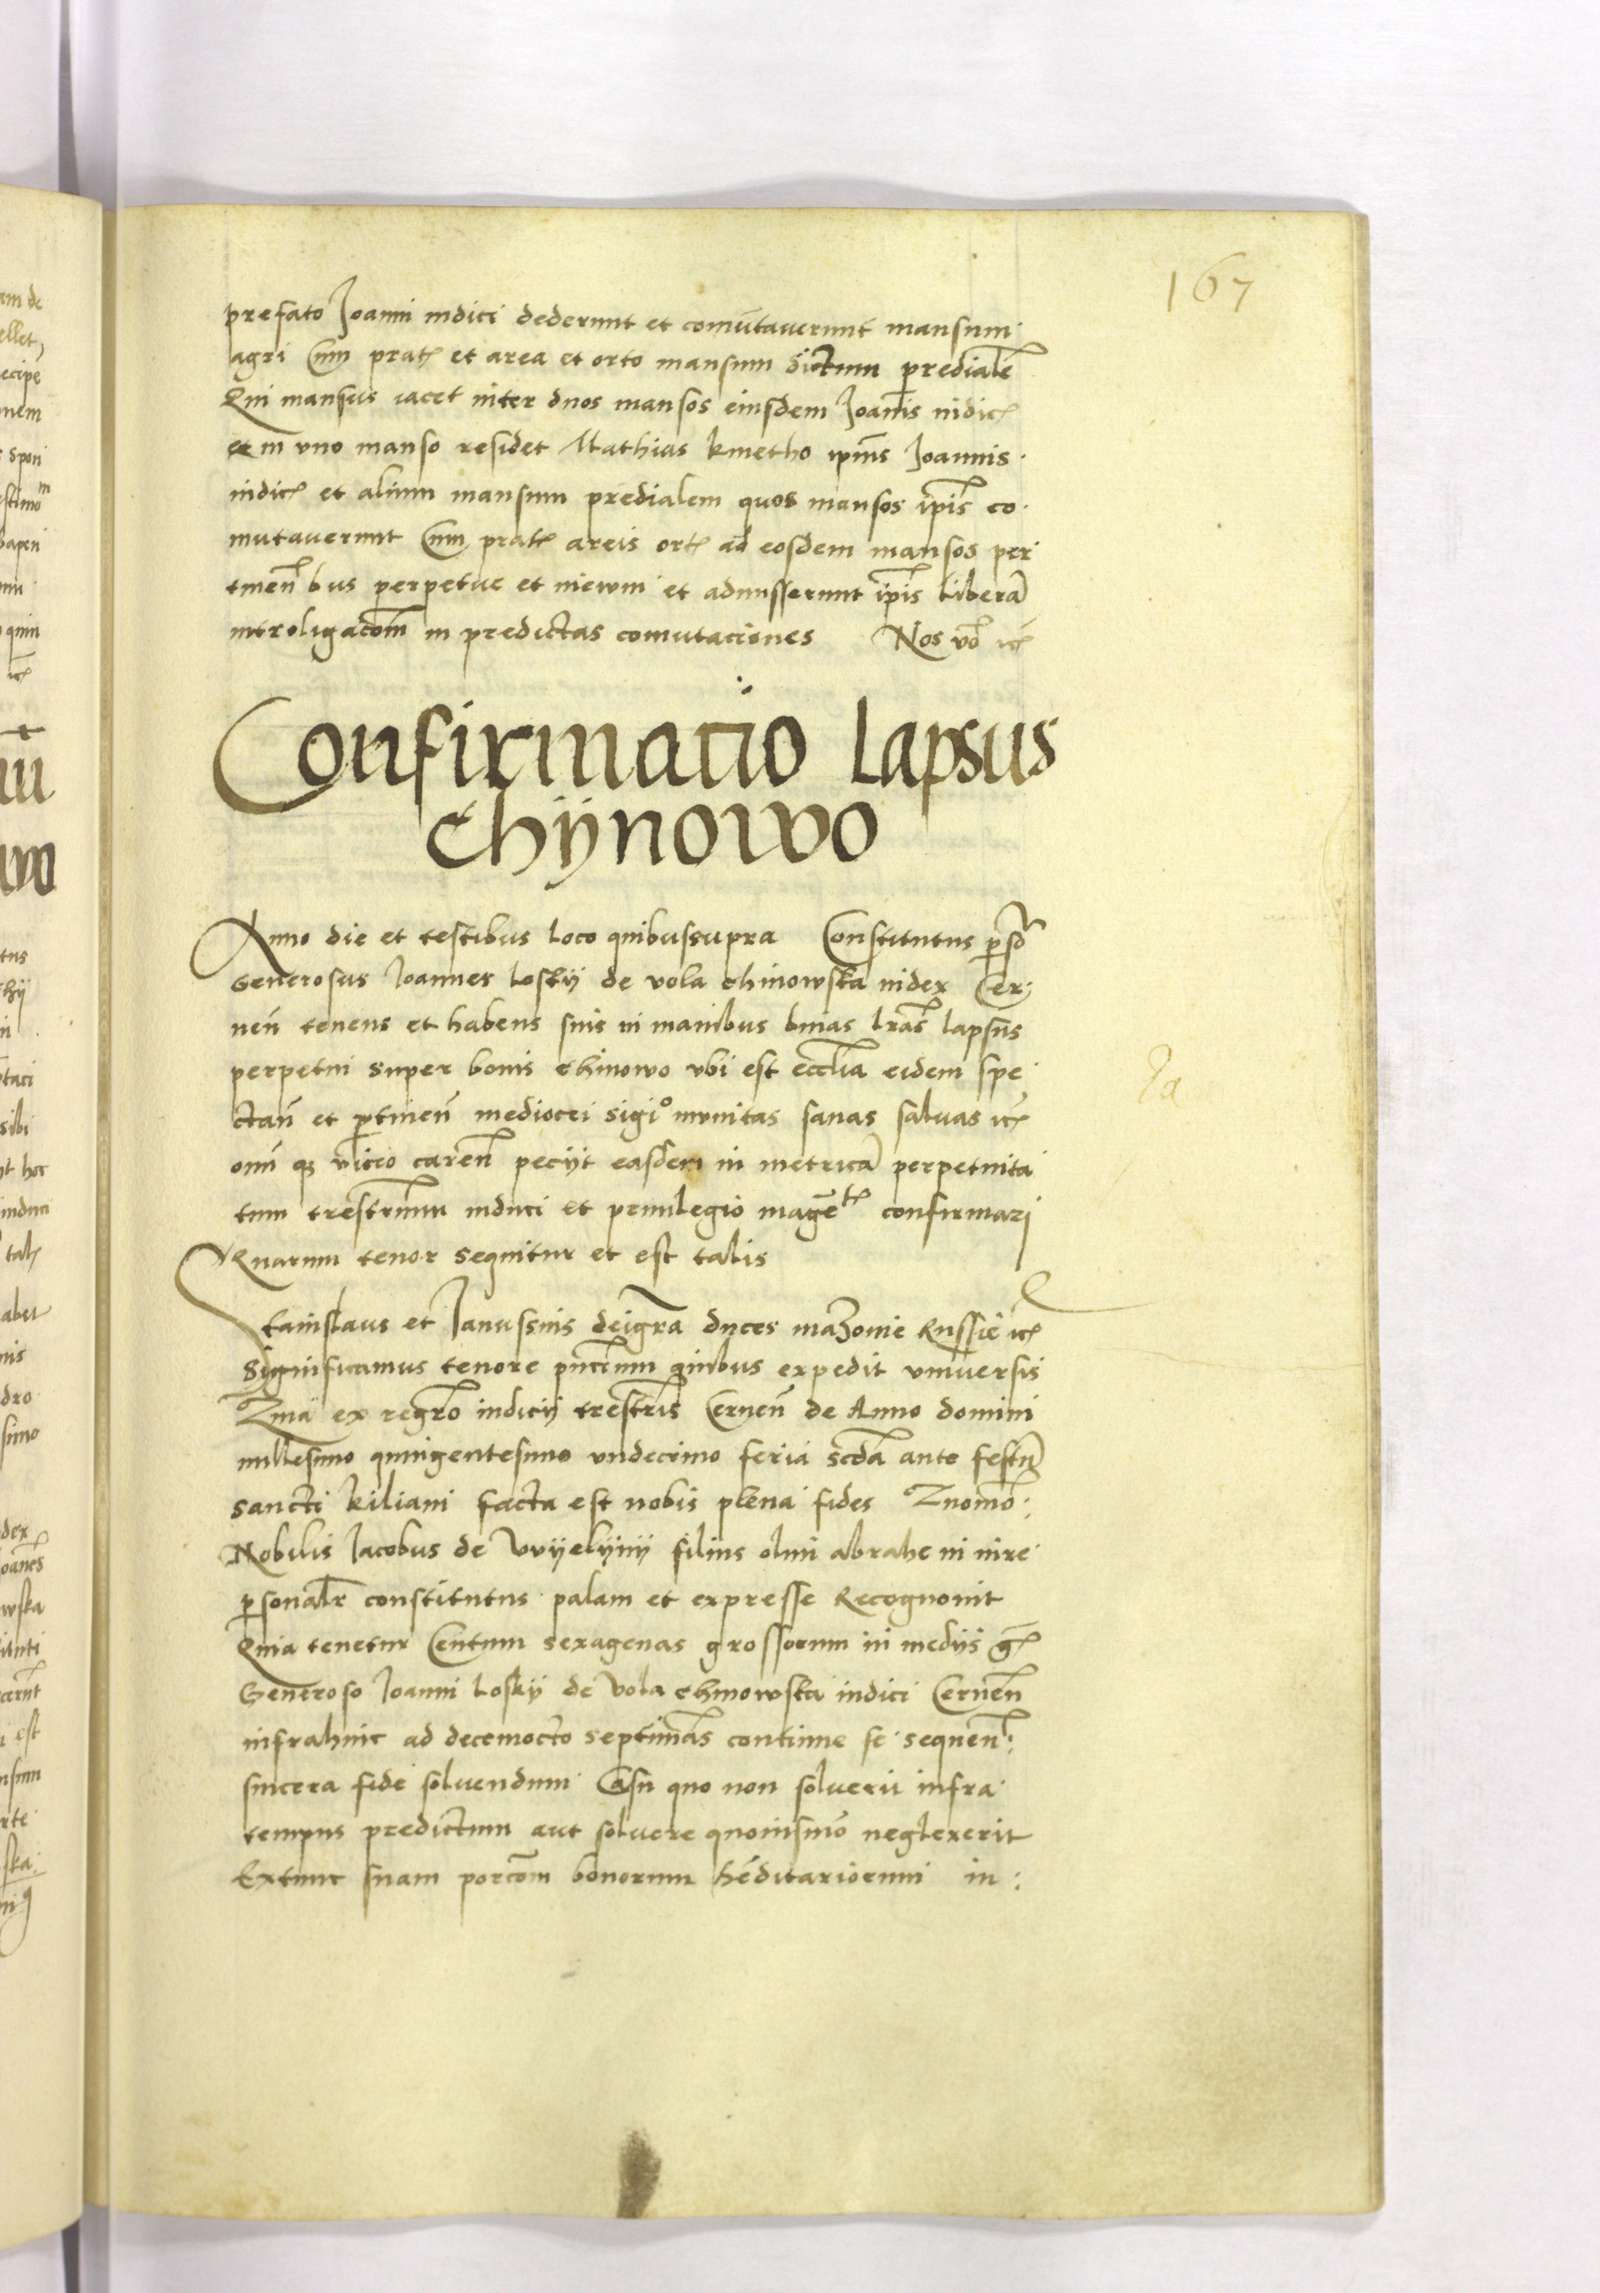 167
prefato Joanni iudici dederunt et comutaverunt mansum
agri Cum prat et area et orto mansum dictum predialē
Qui mansus iacet inter duos mansos eiusdem Joanis iudic
et in uno manso residet Mathias kmetho ipius Joannis
iudic et alium mansum predialem quos mansos ipis co
mutaverunt Cum prat areis ort ad eosdem mansos per
tinen bus perpetue et in ewm et admisserunt ipis liberā
introligacom in predictas comutaciones Nos vo
Confirmatio Lapsus
Chijnowo
Anno die et testibus loco quibussupra Constitutus
Generosus Joannes loskij de vola chinowska iudex Cer
nen tenens et habens suis in manibus binas lras lapsus
perpetui super bonis chinowo ubi est ecclia eidem spe
ctan et ptinen mediocri sigio munitas sanas salvas
onī q vicio caren peciit easdem in metricā perpetuita
tum trestrium induci et privilegio confirmari
Quarum tenor sequitur et est talis
Stanislaus et Janussius deigra duces mazouie Russie
Significamus tenore pntium quibus expedit universis
Quia ex regro iudicij trestris Cernen de Anno domini
millesimo quingentesimo undecimo feria scda ante festū
sancti kiliani facta est nobis plena fides Quomo
Nobilis Jacobus de olim abrahe in iure
psonalr constitutus palam et expresse Recognouit
Quia tenetur Centum sexagenas grossorum in mediis g
Generoso Joanni loskij de vola chinowska iudici Cernen
infrahinc ad decemocto septimas continue se sequen
sincera fide solvendum Casu quo non solverit infra
tempus predictum aut solvere quouismo neglexerit
Extunc suam porcom bonorum heditariorum in
Ja